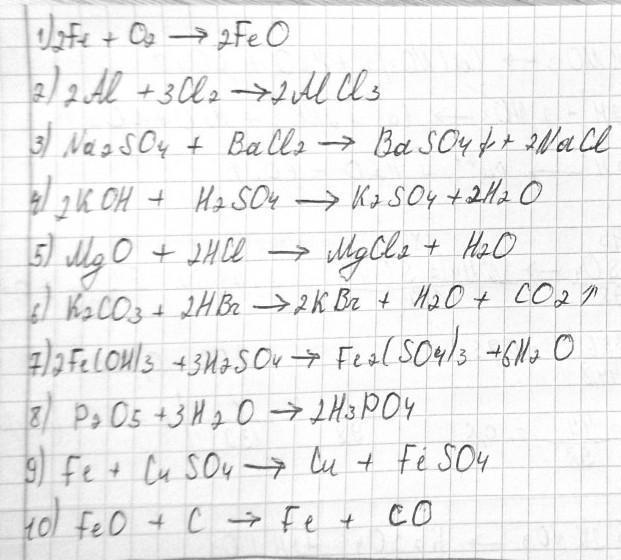 1) 2Fe + O2 → 2FeO
2) 2Al + 3Cl2 → 2AlCl3
3) Na2SO4 + BaCl2 → BaSO4↓ + 2NaCl
4) 2KOH + H2SO4 → K2SO4 + 2H2O
5) MgO + 2HCl → MgCl2 + H2O
6) K2CO3 + 2HBr → 2KBr + H2O + CO2↑
7) 2Fe(OH)3 + 3H2SO4 → Fe2(SO4)3 + 6H2O
8) P2O5 + 3H2O → 2H3PO4
9) Fe + CuSO4 → Cu + FeSO4
10) FeO + C → Fe + CO